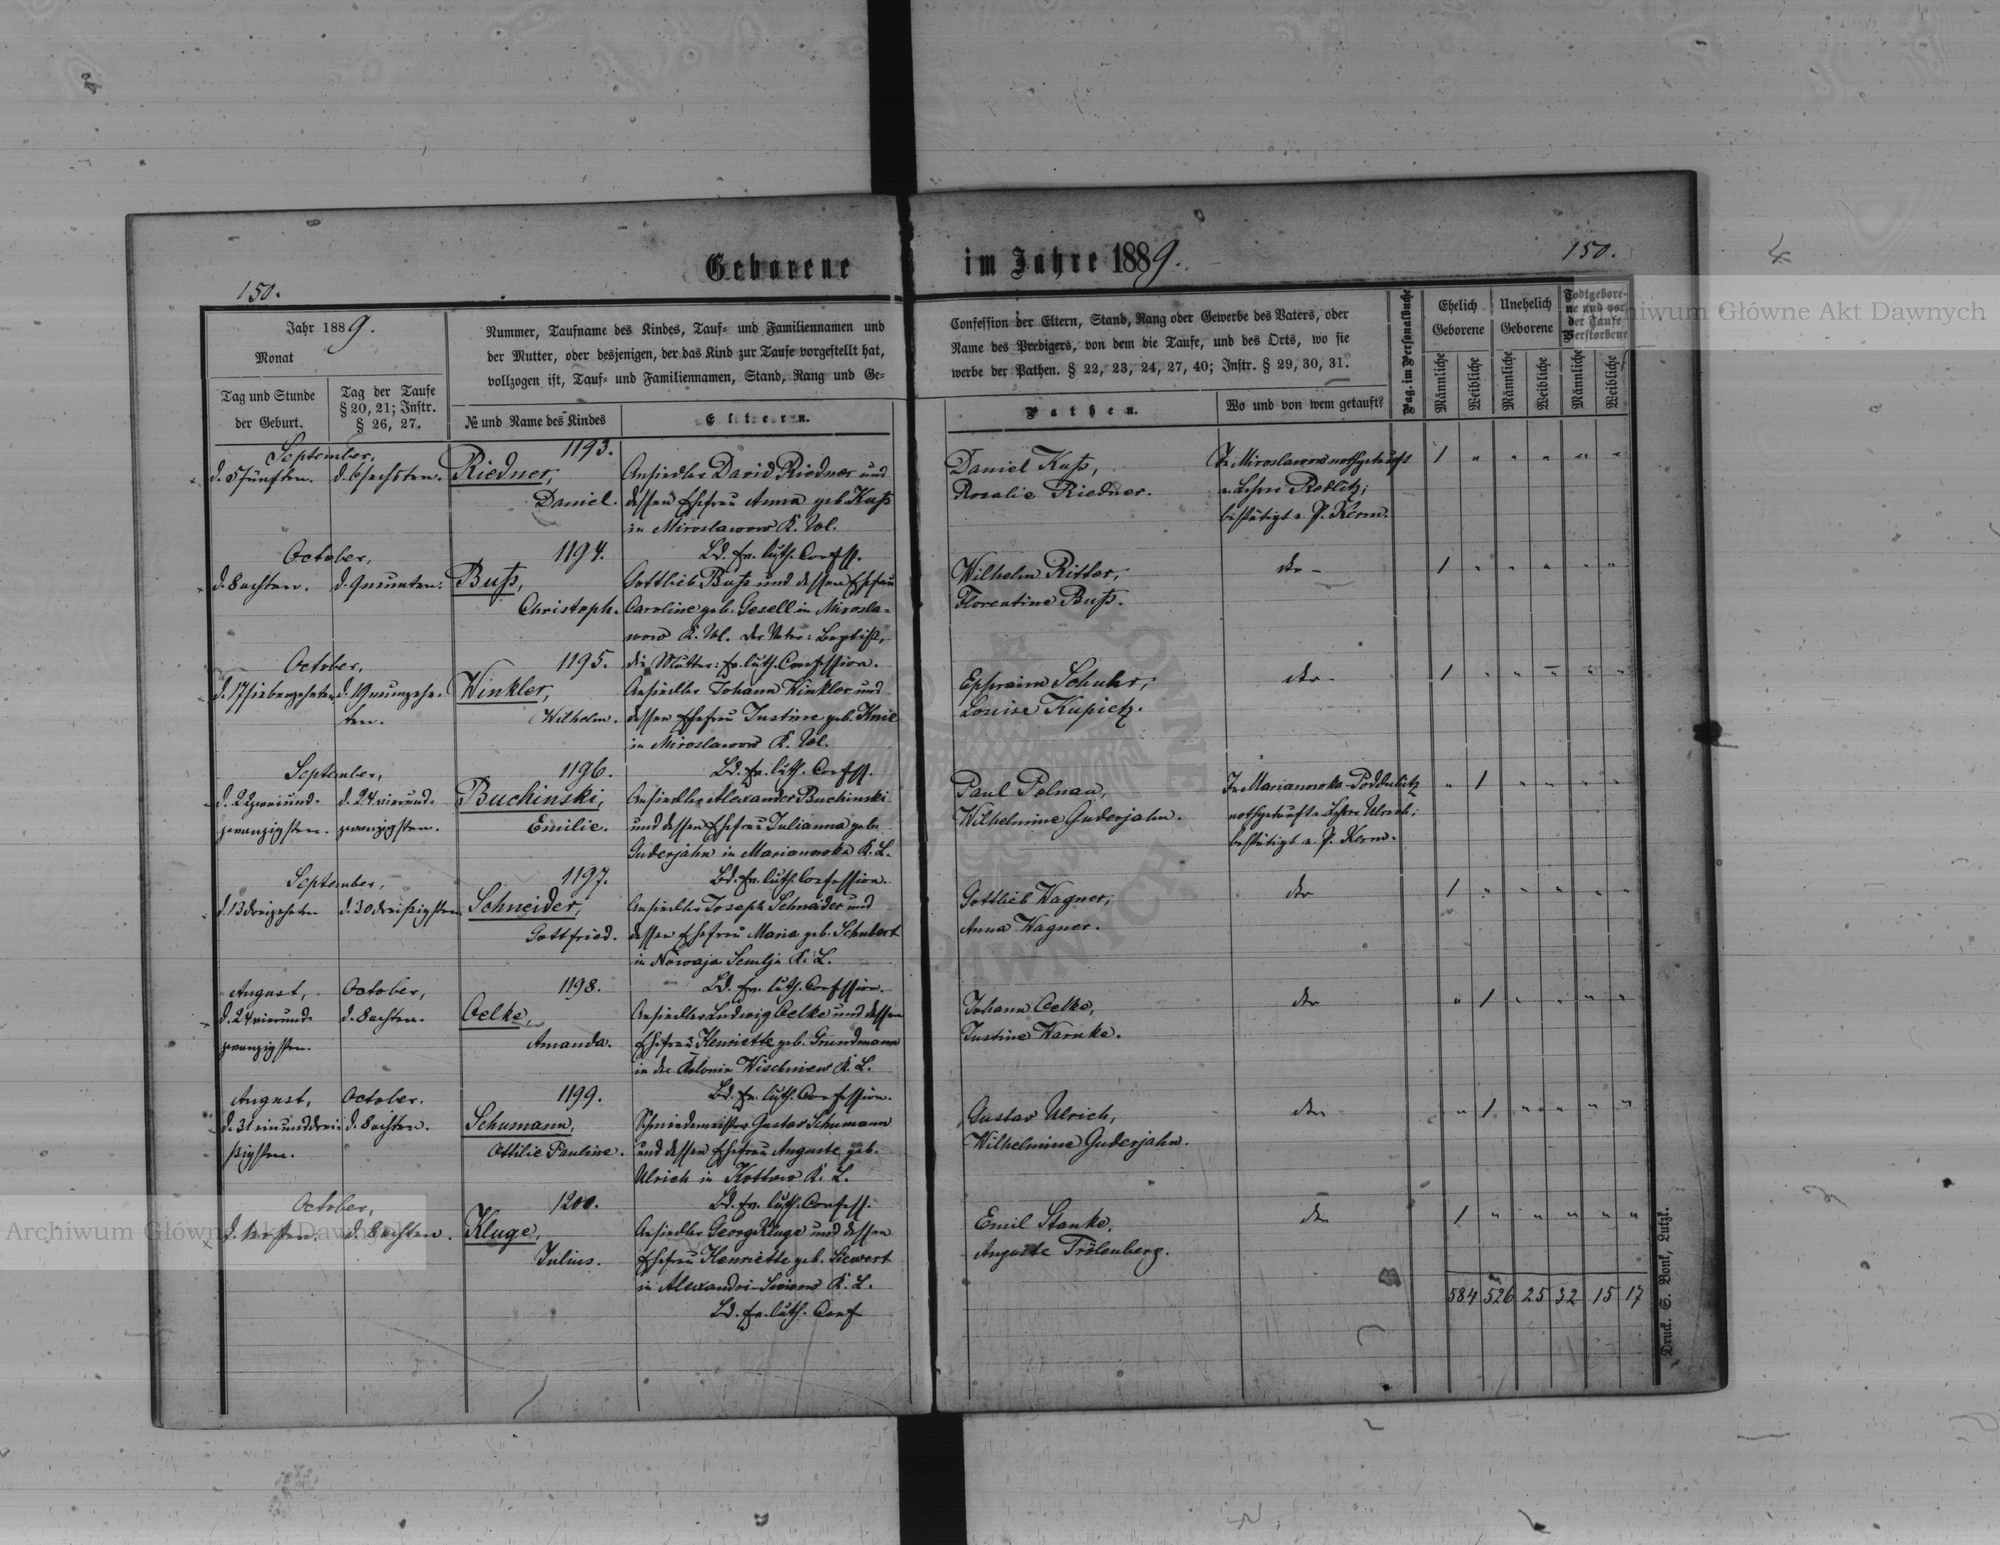 Geborene im Jahre 1889.
150.
150.
Jahr 1889.
Monat
Tag und Stunde
der Geburt.
Tag der Taufe
§ 20, 21; Instr.
§ 26, 27.
Nummer, Taufname des Kindes, Tauf- und Familiennamen und
der Mutter, oder desjenigen, der das Kind zur Taufe vorgestellt hat,
vollzogen ist, Tauf- und Familiennamen, Stand, Rang und Ge-
№ und Name des Kindes
Eltern.
Confession der Eltern, Stand, Rang oder Gewerbe des Vaters, oder
Name des Predigers, von dem die Taufe, und des Orts, wo sie
werbe der Pathen. § 22, 23, 24, 27, 40; Instr. § 29, 30, 31.
Pathen.
Wo und von wem getauft?
Pag. im Personalbuche
Ehelich
Geborene
Unehelich
Geborene
Todtgebore-
ne und vor
der Taufe
Verstorbene
Männliche
Weibliche
Männliche
Weibliche
Männliche
Weibliche
September,
1193.
d. 5 fünften. d. 6 sechsten. Riedner,
Daniel.
Ansiedler David Riedner und
dessen Ehefrau Anna geb. Kuß
in Miroslawow K. Wl.
Bd. Ev. luth. Confess.
Daniel Kuß,
Rosalie Riedner.
In Miroslawow nothgetauft
v. Lehrer Redlitz;
bestätigt v. P. Kerm.
1 " " " " "
October,
1194.
d. 8 achten. d. 9 neunten. Buß,
Christoph.
Gottlieb Buß und dessen Ehefrau
Caroline geb. Gesell in Mirosla-
wow K. Wl. Der Vater: Baptist,
die Mutter: Ev. luth. Confession.
Wilhelm Ritter,
Florentine Buß.
dto -
1 " " " " "
October,
1195.
d. 17 siebenzehnten d. 19 neunzehn-
ten.
Winkler,
Wilhelm.
Ansiedler Johann Winkler und
dessen Ehefrau Justine geb. Knie
in Miroslawow K. Wl.
Bd. Ev. luth. Confess.
Ephraim Schuhr,
Louise Kupietz.
dto -
1 " " " " "
September,
1196.
d. 22 zweiund-
zwanzigsten.
d. 24 vierund-
zwanzigsten.
Buchinski,
Emilie.
Ansiedler Alexander Buchinski
und dessen Ehefrau Julianna geb.
Guderjahn in Marianowka K. L.
Bd. Ev. luth. Confession.
Paul Polnau,
Wilhelmine Guderjahn.
In Marianowka-Poddubitz
nothgetauft v. Lehrer Ulrich;
bestätigt v. P. Kerm.
" 1 " " " "
September,
1197.
d. 13 dreizehnten d. 30 dreißigsten Schneider,
Gottfried.
Ansiedler Joseph Schneider und
dessen Ehefrau Maria geb. Schubert
in Nowaja Semlja K. L.
Bd. Ev. luth. Confession.
Gottlieb Wagner,
Anna Wagner.
dto
1 " " " " "
August,
October,
1198.
d. 24 vierund-
zwanzigsten.
d. 8 achten.
Oelke,
Amanda.
Ansiedler Ludwig Oelke und dessen
Ehefrau Henriette geb. Grundmann
in der Kolonie Wischniew K. L.
Bd. Ev. luth. Confession.
Johann Oelke,
Justine Warnke.
dto
" 1 " " " "
August,
October.
1199.
d. 31 einunddrei-
ßigsten.
d. 8 achten.
Schumann,
Ottilie Pauline.
Schmiedemeister Gustav Schumann
und dessen Ehefrau Auguste geb.
Ulrich in Kottow K. L.
Bd. Ev. luth. Confess.
Gustav Ulrich,
Wilhelmine Guderjahn.
dto
" 1 " " " "
October,
1200.
d. 1 ersten. d. 8 achten. Kluge,
Julius.
Ansiedler Georg Kluge und dessen
Ehefrau Henriette geb. Siewert
K. L.
Bd. Ev. luth. Conf
Emil Stanke,
Auguste Trölenberg.
dto
1 " " " " "
584 526 25 32 15 17
Druck. S. Bonk, Lutzk.
Archiwum Główne Akt Dawnych
Archiwum Główne Akt Dawnych